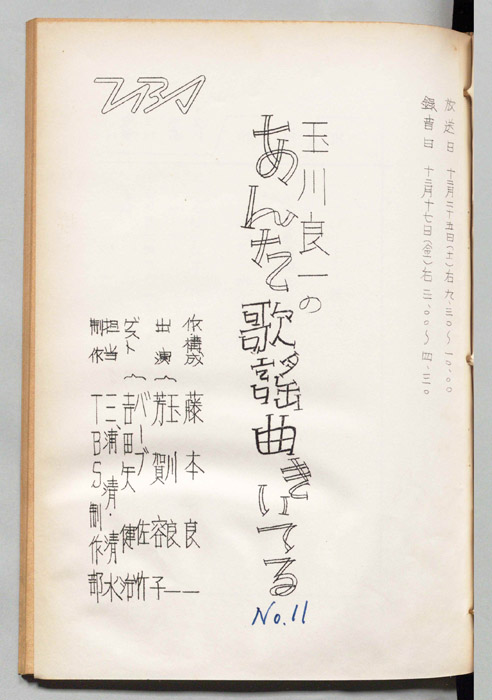 放送日 十二月二十五日(土)右九.三〇〜一〇.〇〇
録音日 十二月十七日(金)右三.〇〇〜四.三〇
玉川良一の
あんたこの歌謡曲きいてる
No.11
作・構成 藤本良一
出演 玉川良一
芳賀容子
ゲスト バーブ佐竹
吉田矢健治
担当 三浦清・清水
制作 TBS制作部
TBS